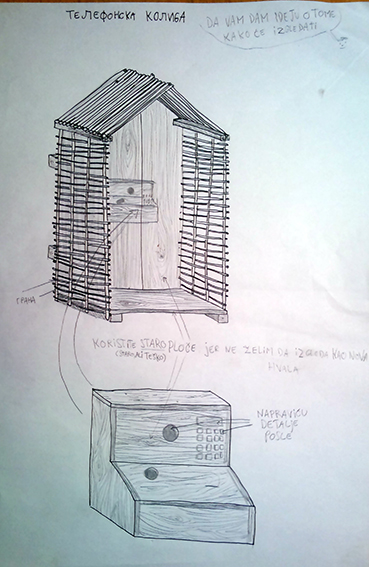 ТЕЛЕФОНСКА КОЛИБА
DA VAM DAM IDEJU O TOME
KAKO ĆE IZGLEDATI
ГРАНА
KORISTITE STARO PLOČE JER NE ŽELIM DA IZGLEDA KAO NOVA
HVALA
NAPRAVIĆU
DETALJE
POSLE